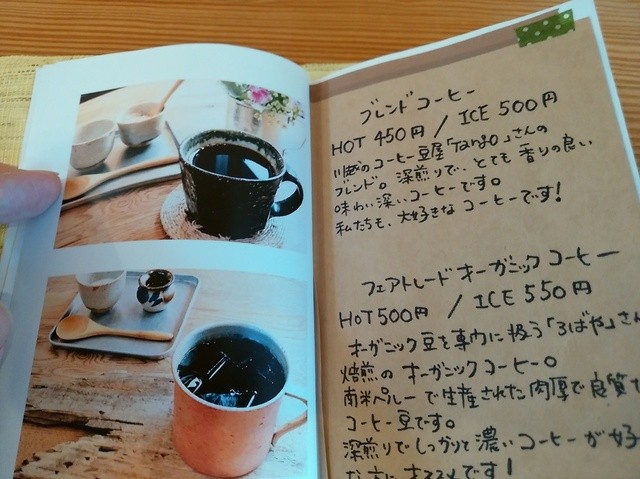 ブレンドコーヒー
HOT 450円 / ICE 500円
川越のコーヒー豆屋「Tango」さんの
ブレンド。深煎りで、とても香りの良い
味わい深いコーヒーです。
私たちも、大好きなコーヒーです!
フェアトレードオーガニックコーヒー
HOT 500円 / ICE 550円
オーガニック豆を専門に扱う「ろばや」さん
焙煎のオーガニックコーヒー。
南米ペルーで生産された肉厚で良質な
コーヒー豆です。
深煎りでしっかりと濃いコーヒーが好
な方にオススメです!